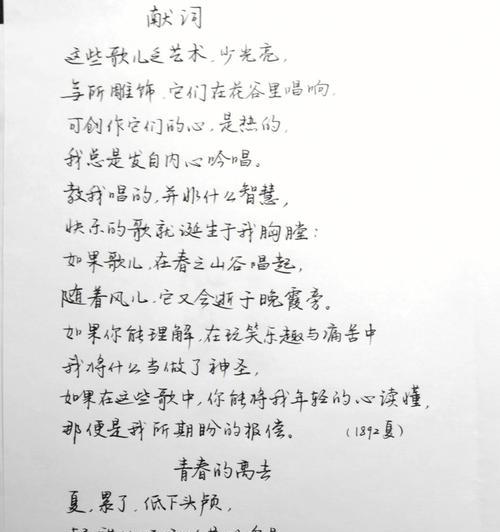 献词
这些歌儿乏艺术，少光亮，
无所雕饰，它们在花谷里唱响，
可创作它们的心，是热的，
我总是发自内心吟唱。
教我唱的，并非什么智慧，
快乐的歌就诞生于我胸膛：
如果歌儿，在春之山谷唱起，
随着风儿，它又会逝于晚霞旁。
如果你能理解，在玩笑乐趣与痛苦中
我将什么当做了神圣，
如果在这些歌中，你能将我年轻的心读懂，
那便是我所期盼的报偿。 （1892夏）
青春的离去
夏，累了，低下头颅，